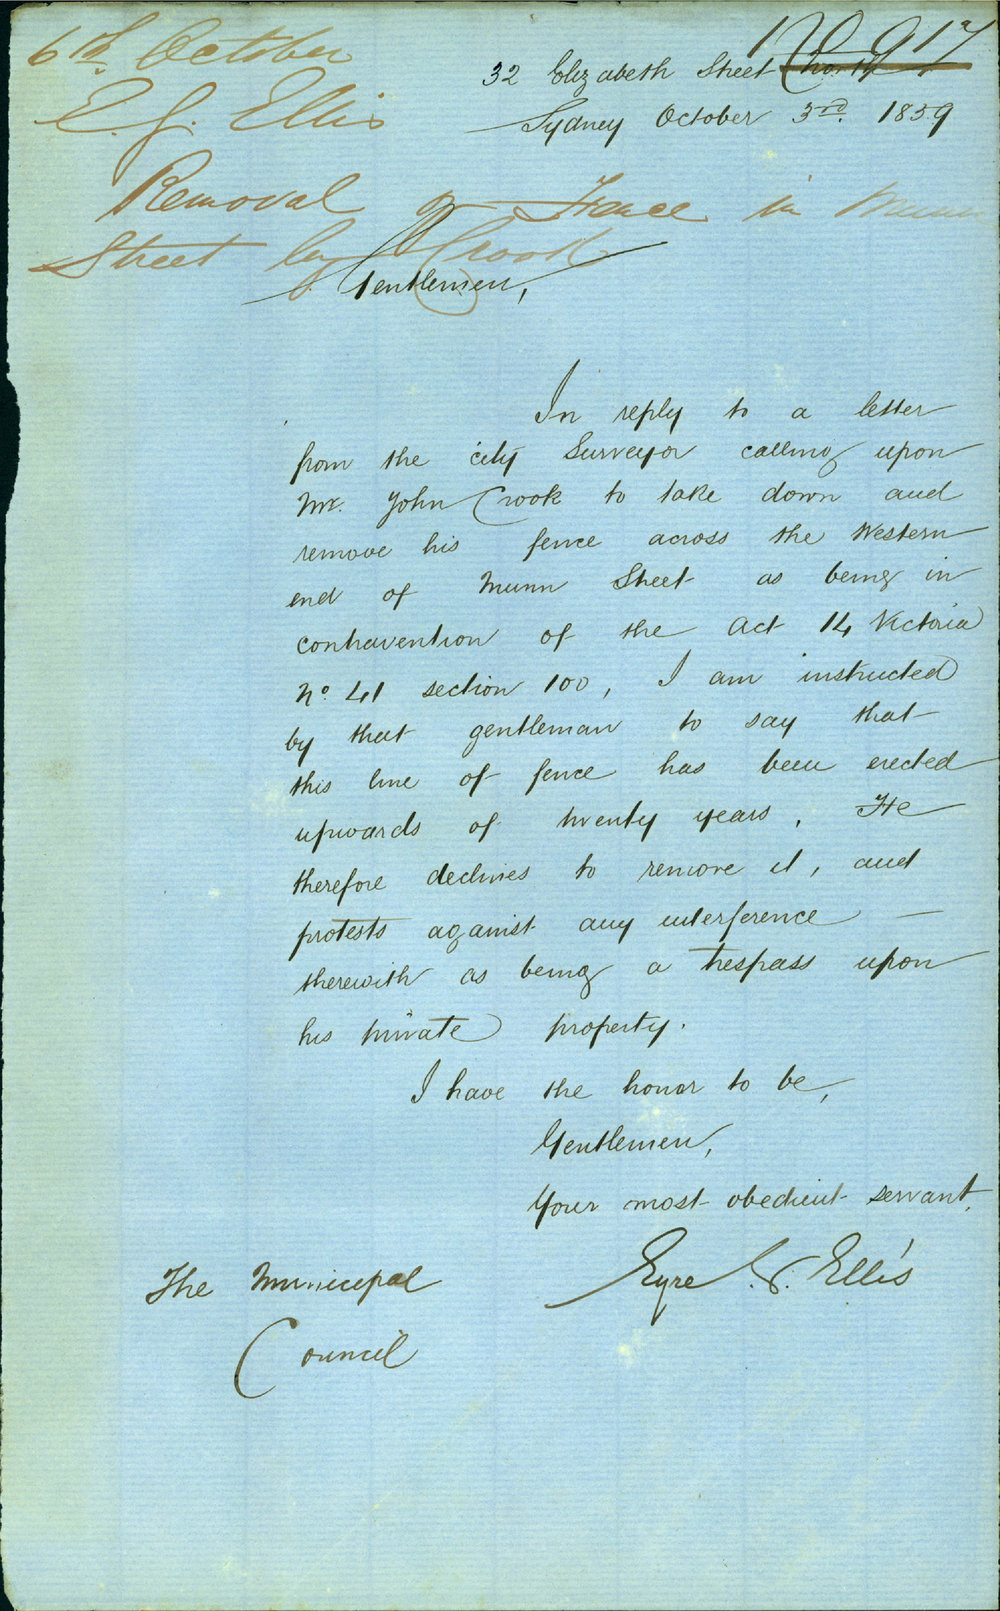 6th October
No 917
32 Elizabeth Street North
E. J. Ellis
Sydney October 3rd. 1859
Removal of Fence in Munn
Street by J. Crook
Gentlemen,
In reply to a letter
from the city Surveyor calling upon
Mr. John Crook to take down and
remove his fence across the Western
end of Munn Street as being in
contravention of the Act 14 Victoria
No. 41 section 100, I am instructed
by that gentleman to say that
this line of fence has been erected
upwards of twenty years. He
therefore declines to remove it, and
protests against any interference —
therewith as being a trespass upon
his private property.
I have the honor to be,
Gentlemen,
Your most obedient servant,
Eyre J. Ellis
The Municipal
Council